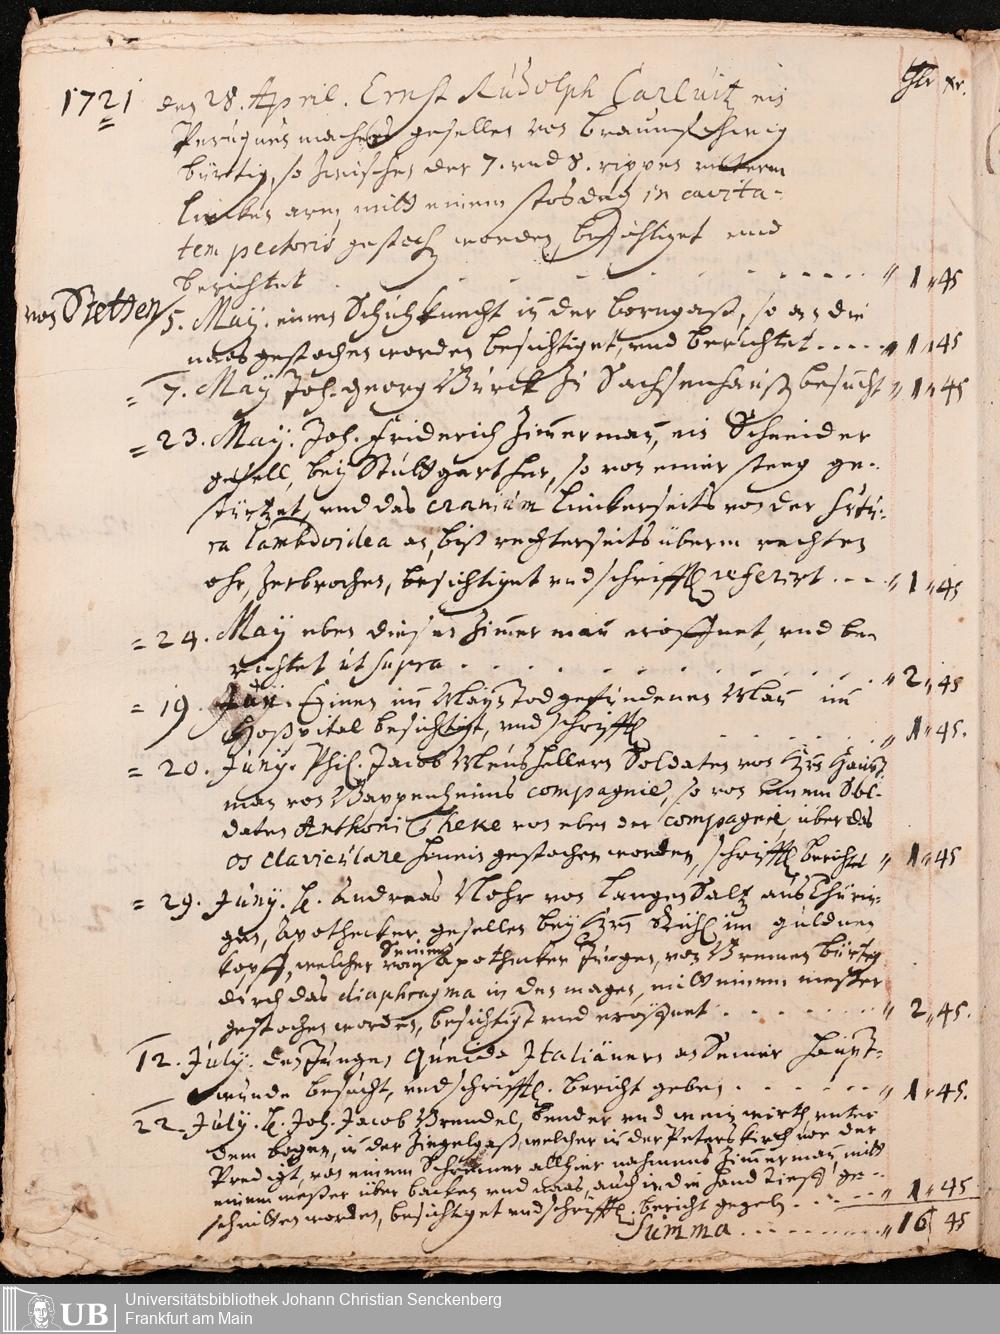 flr xr.
1721 den 28. April. Ernst Rudolph Carluitz ein
Peruquenmacher gesellen von Braunschweig
bürtig, so zwischen der 7. und 8. rippen unterm
lincken arm mitt einem stosdeg in cavita-
tem pectoris gestoch worden besichtiget und
berichtet . . . . . . . . " 1 " 45
von Stetten
5. Maij. einen Schuchknecht in der borngaß, so an die
naas gestochen worden besichtiget, und berichtet . . . . " 1 " 45
= 7. Maij Joh. Georg Bürck zu Sachsenhauß besucht " 1 " 45
= 23. Maij. Joh. Friderich Zimmerman, ein Schneider
gesell, beij Stuttgart her, so von einer steeg ge-
stürtzet, und das cranium linckerseits von der Sutu-
ra lambdoidea an, biß rechterseits überm rechten
ohr, zerbrochen, besichtiget und schrifftl referirt . . . " 1 " 45
= 24. Maij eben diesen Zimmerman eröffnet, und be-
richtet ut supra . . . . . . . . " 2 " 45
= 19. Einen im Mayn tod gefundenen Man im
Hospital besichtigt, und schrifftl . . . . " 1 " 45.
= 20. Junij. Phil. Jacob Soldaten von Hrn Haupt-
man von Pappenheims compagnie, so von einem Sol-
daten Anthoni Theke von eben der compagnie über das
os claviculare hinein gestochen worden, schrifftl berichtet " 1 " 45
= 29. Junij. H. Andreas Mohr von LangenSaltz aus Thürin-
gen, Apothecker gesellen beij Hrn im güldnen
kopff, welcher von Seinem Apothecker Jungen, von Bremen bürtig
durch das diaphragma in den magen, mitt einem messer
gestochen worden, besichtigt und eröffnet . . . . . . " 2 " 45.
12. Julij. den Jungen Italiäner an Seiner Haupt-
wunde besucht, und schrifftl. bericht geben . . . . . " 1 " 45.
22. Julij. H. Joh. Jacob Brendel, bender und wein wirth unter
dem bogen, in der Ziegelgaß, welcher in der Peterskirch vor der
Predigt, von einem Schreiner allhier nahmens Zimmerman mitt
einem messer über backen und naas, auch in die hand tieff ge-
schnitten worden, besichtiget und schrifftl. bericht gegeben . . . . " 1 " 45
Summa . . . . . . . . " 16 45
Universitätsbibliothek Johann Christian Senckenberg
Frankfurt am Main
UB